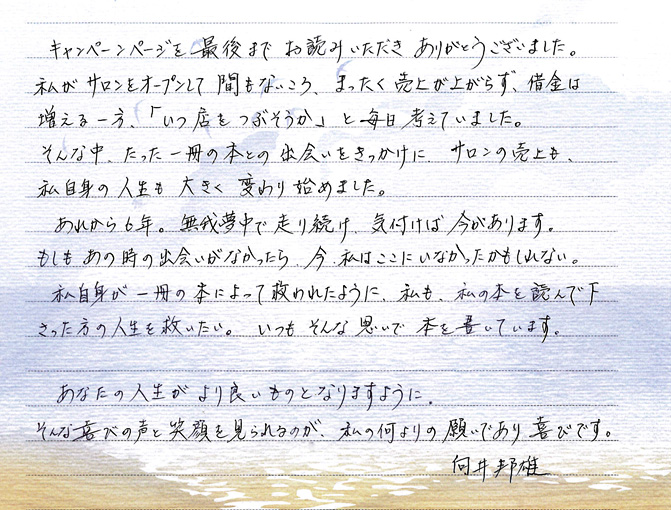 キャンペーンページを最後までお読みいただきありがとうございました。
私がサロンをオープンして間もないころ、まったく売上が上がらず、借金は
増える一方、「いつ店をつぶそうか」と毎日考えていました。
そんな中、たった一冊の本との出会いをきっかけに、サロンの売上も、
私自身の人生も大きく変わり始めました。
あれから6年。無我夢中で走り続け、気付けば今があります。
もしもあの時の出会いがなかったら、今、私はここにいなかったかもしれない。
私自身が一冊の本によって救われたように、私も、私の本を読んで下
さった方の人生を救いたい。いつもそんな思いで本を書いています。
あなたの人生がより良いものとなりますように。
そんな喜びの声と笑顔を見られるのが、私の何よりの願いであり喜びです。
向井邦雄